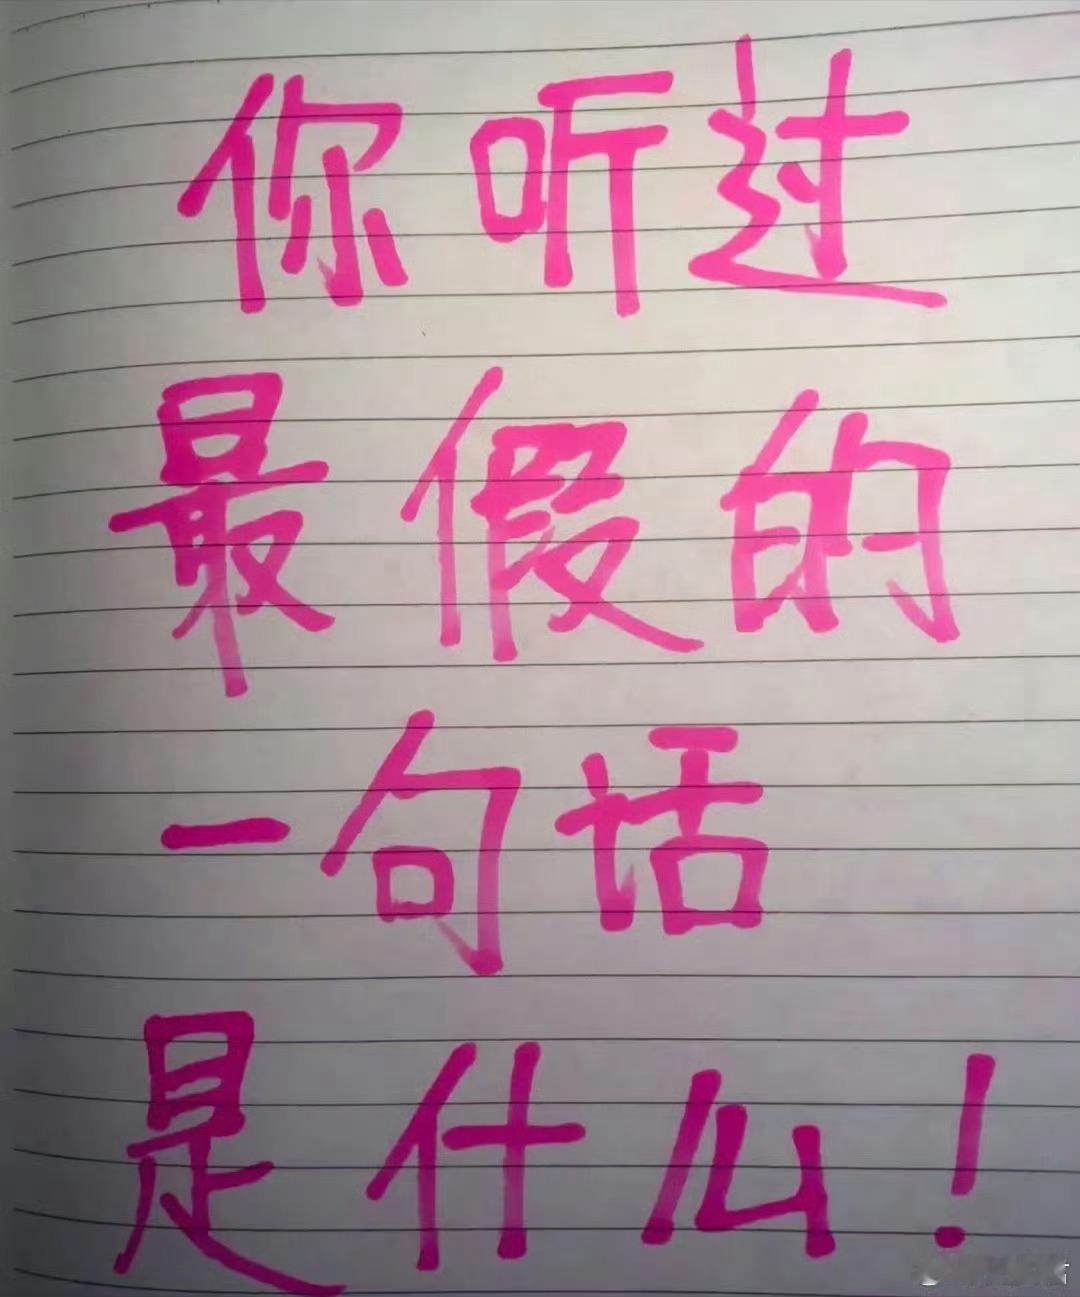 你听过
最假的
一句话
是什么！